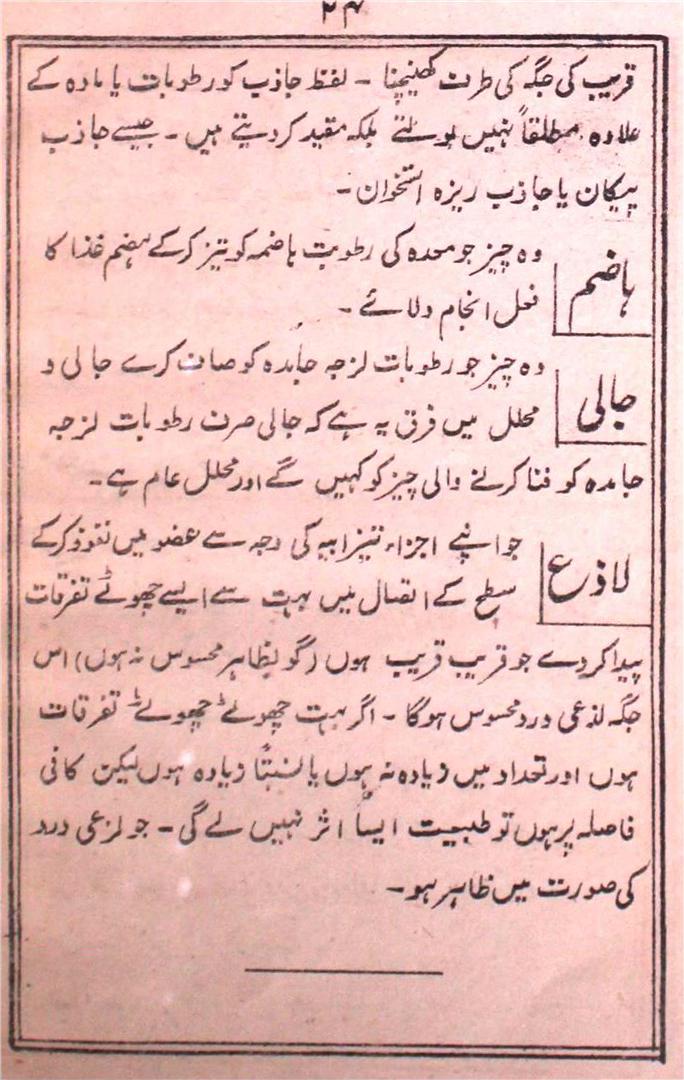 ۲۴
قریب کی جگہ کی طرف کھینچنا ۔ لفظ جاذب کو رطوبات یا مادہ کے
علاوہ مطلقاً نہیں بولتے بلکہ مقید کر دیتے ہیں ۔ جیسے جاذب
پیکان یا جاذب ریزہ استخوان ۔
ہاضم
وہ چیز جو معدہ کی رطوبت ہاضمہ کو تیز کرکے ہضم غذا کا
فعل انجام دلائے ۔
جالی
وہ چیز جو رطوبات لزجہ جامدہ کو صاف کرے جالی و
محلل میں فرق یہ ہے کہ جالی صرف رطوبات لزجہ
جامدہ کو فنا کرنے والی چیز کو کہیں گے اور محلل عام ہے ۔
لاذع
جو اپنے اجزاء تیزابیہ کی وجہ سے عضو میں نفوذ کرکے
سطح کے اتصال میں بہت سے ایسے چھوٹے تفرقات
پیدا کردے جو قریب قریب ہوں (گو بظاہر محسوس نہ ہوں) اس
جگہ لذعی درد محسوس ہوگا ۔ اگر بہت چھوٹے چھوٹے تفرقات
ہوں اور تعداد میں زیادہ نہ ہوں یا نسبتاً زیادہ ہوں لیکن کافی
فاصلہ پر ہوں تو طبیعت ایسا اثر نہیں لے گی ۔ جو لزعی درد
کی صورت میں ظاہر ہو ۔